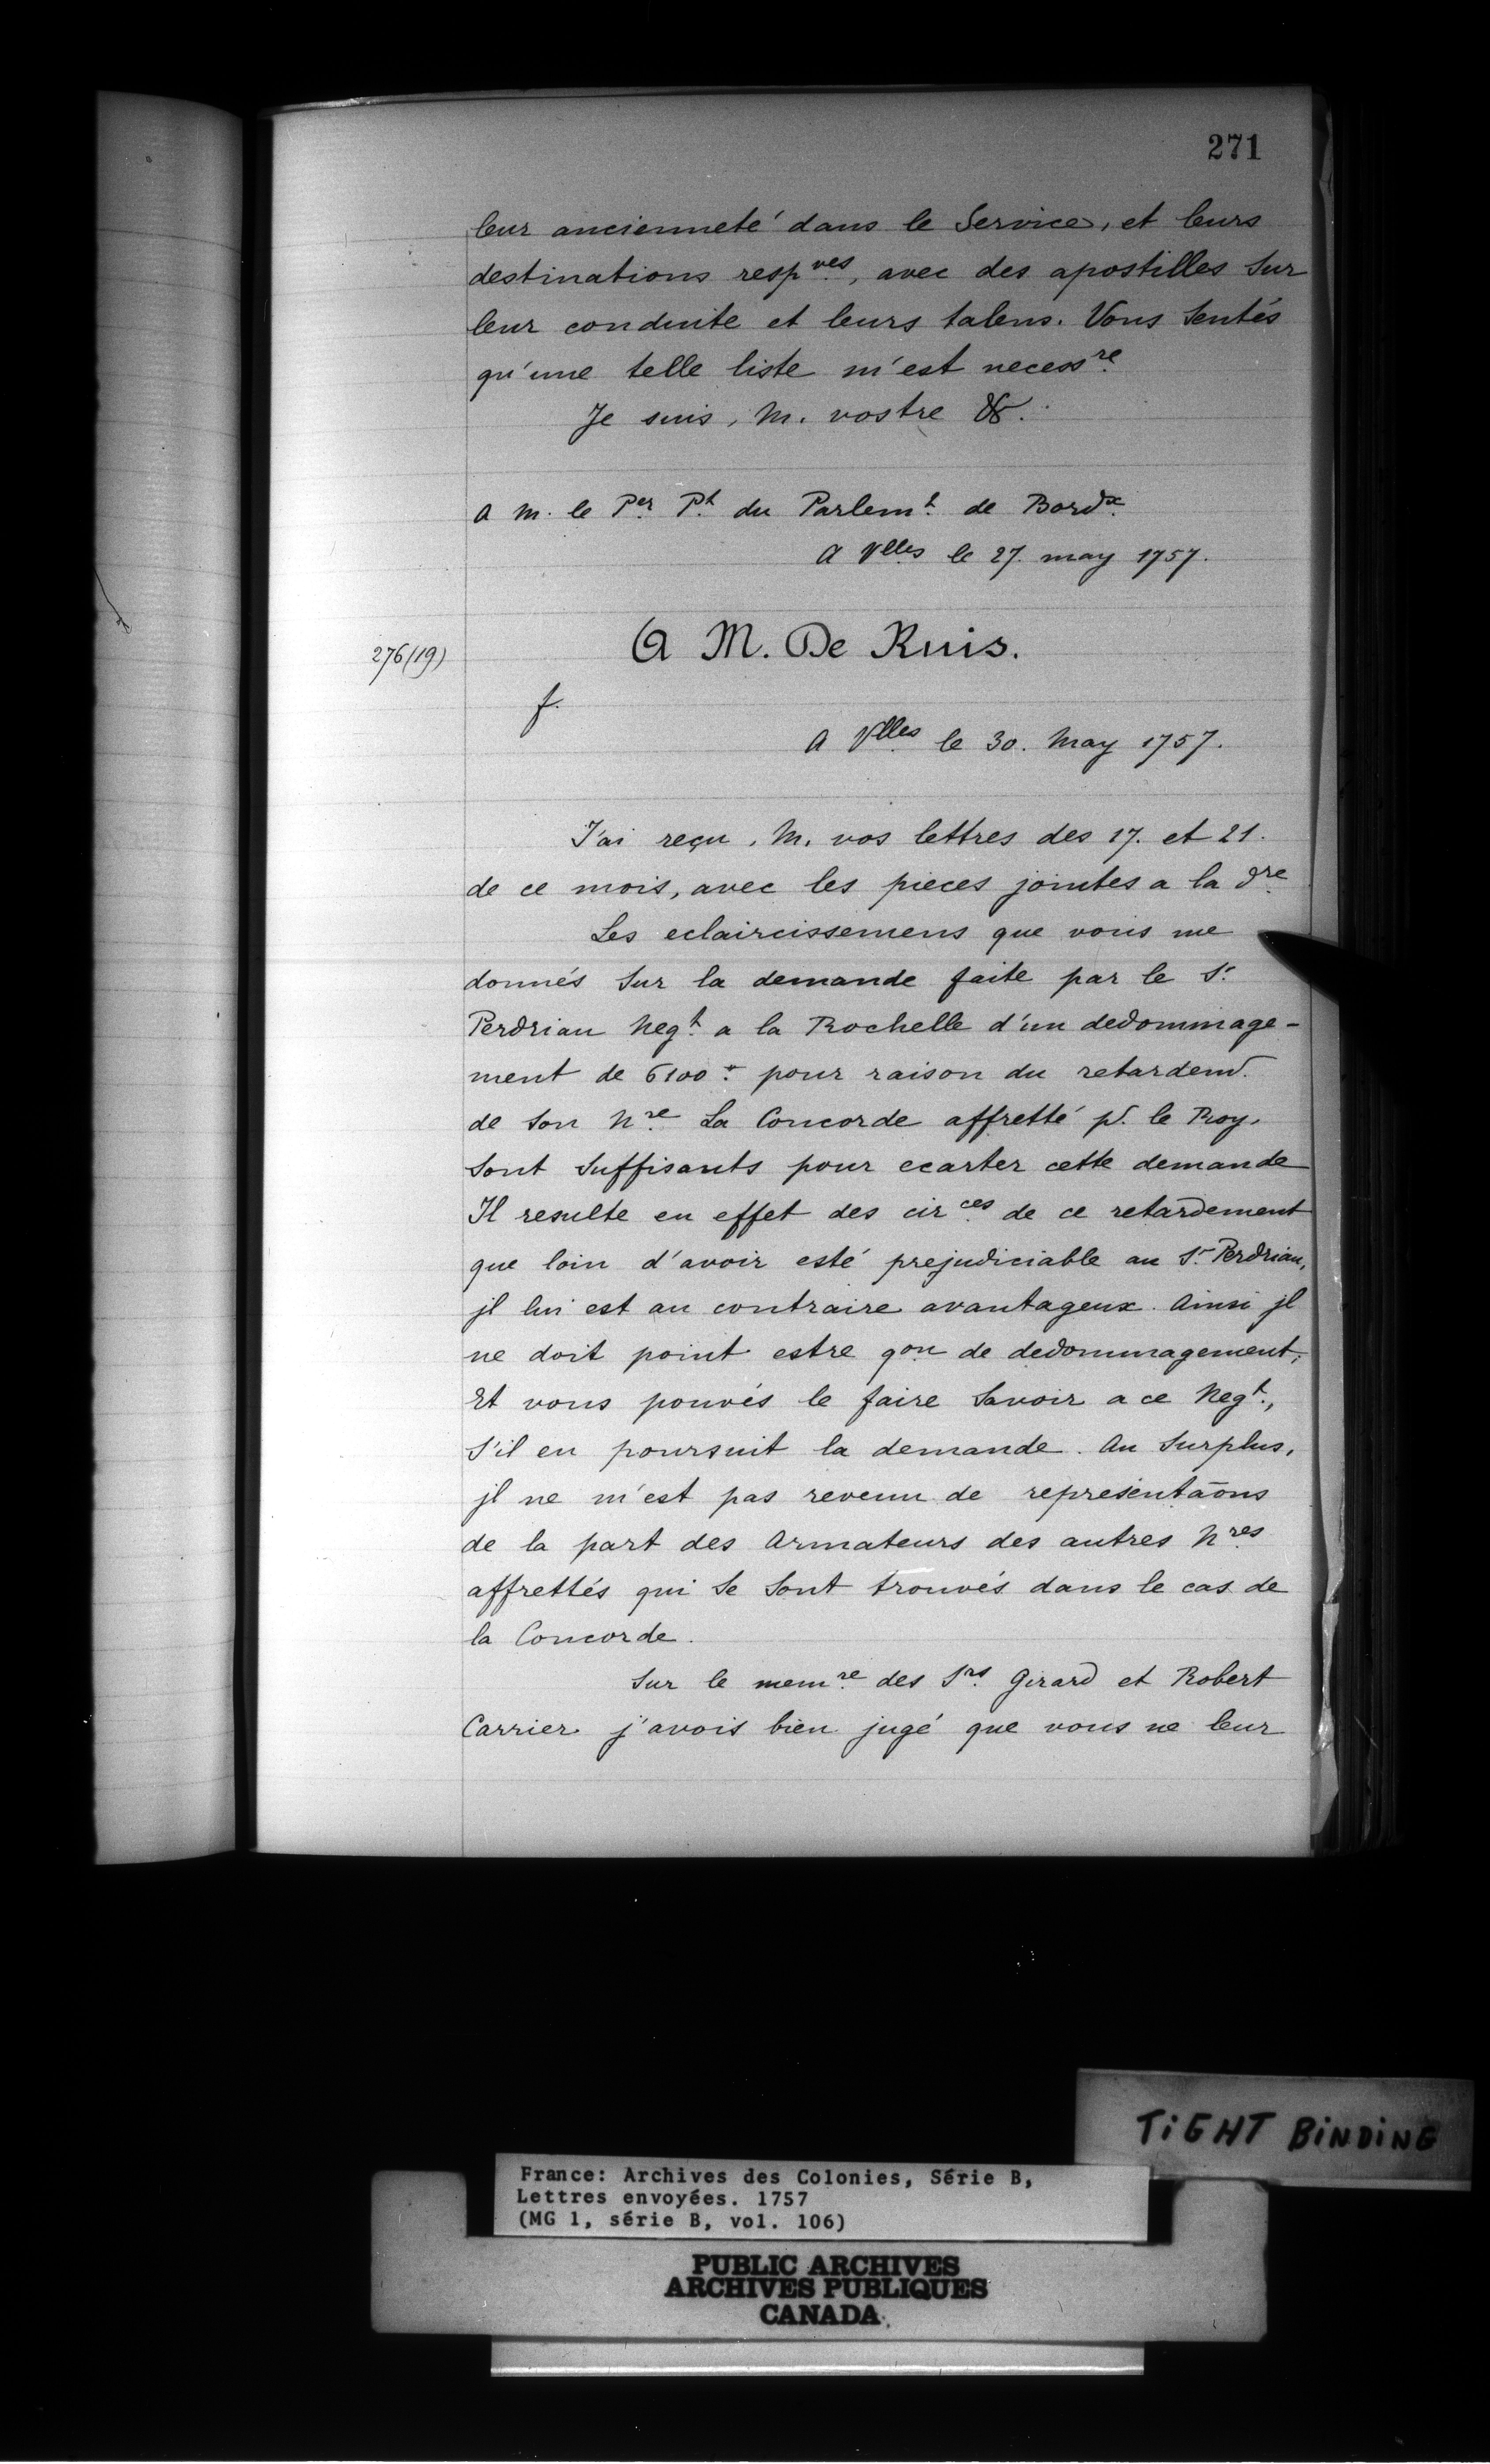 271
leur ancienneté dans le Service, et leurs
destinations respves, avec des apostilles Sur
leur conduite et leurs talens. Vous Sentés
qu'une telle liste m'est necessre
Je suis, M. vostre &.
A M. le Per Pt du Parlemt de Bordx
A Vlles le 27. may 1757.
276(19)
A M. De Ruis.
f.
A Vlles le 30. May 1757.
J'ai reçu, M. vos lettres des 17. et 21.
de ce mois, avec les pieces jointes a la dre
Les eclaircissemens que vous me
donnés Sur la demande faite par le Sr
Perdriau Negt a la Rochelle d'un dedommage-
ment de 6100 pour raison du retardemt.
de Son Nre La Concorde affretté pr. le Roy,
Sont Suffisants pour ecarter cette demande
Il resulte en effet des circes de ce retardement
que loin d'avoir esté prejudiciable au Sr Perdriau,
jl lui est au contraire avantageux. Ainsi jl
ne doit point estre qon de dedommagement;
Et vous pouvés le faire Savoir a ce Negt.,
S'il en poursuit la demande. Au Surplus,
jl ne m'est pas revenu de représentāons
de la part des Armateurs des autres Nres
affrettés qui Se Sont trouvés dans le cas de
la Concorde.
Sur le memre des Srs Girard et Robert
Carrier j'avois bien jugé que vous ne leur
TIGHT BINDING
France: Archives des Colonies, Série B,
Lettres envoyées. 1757
(MG 1, série B, vol. 106)
PUBLIC ARCHIVES
ARCHIVES PUBLIQUES
CANADA